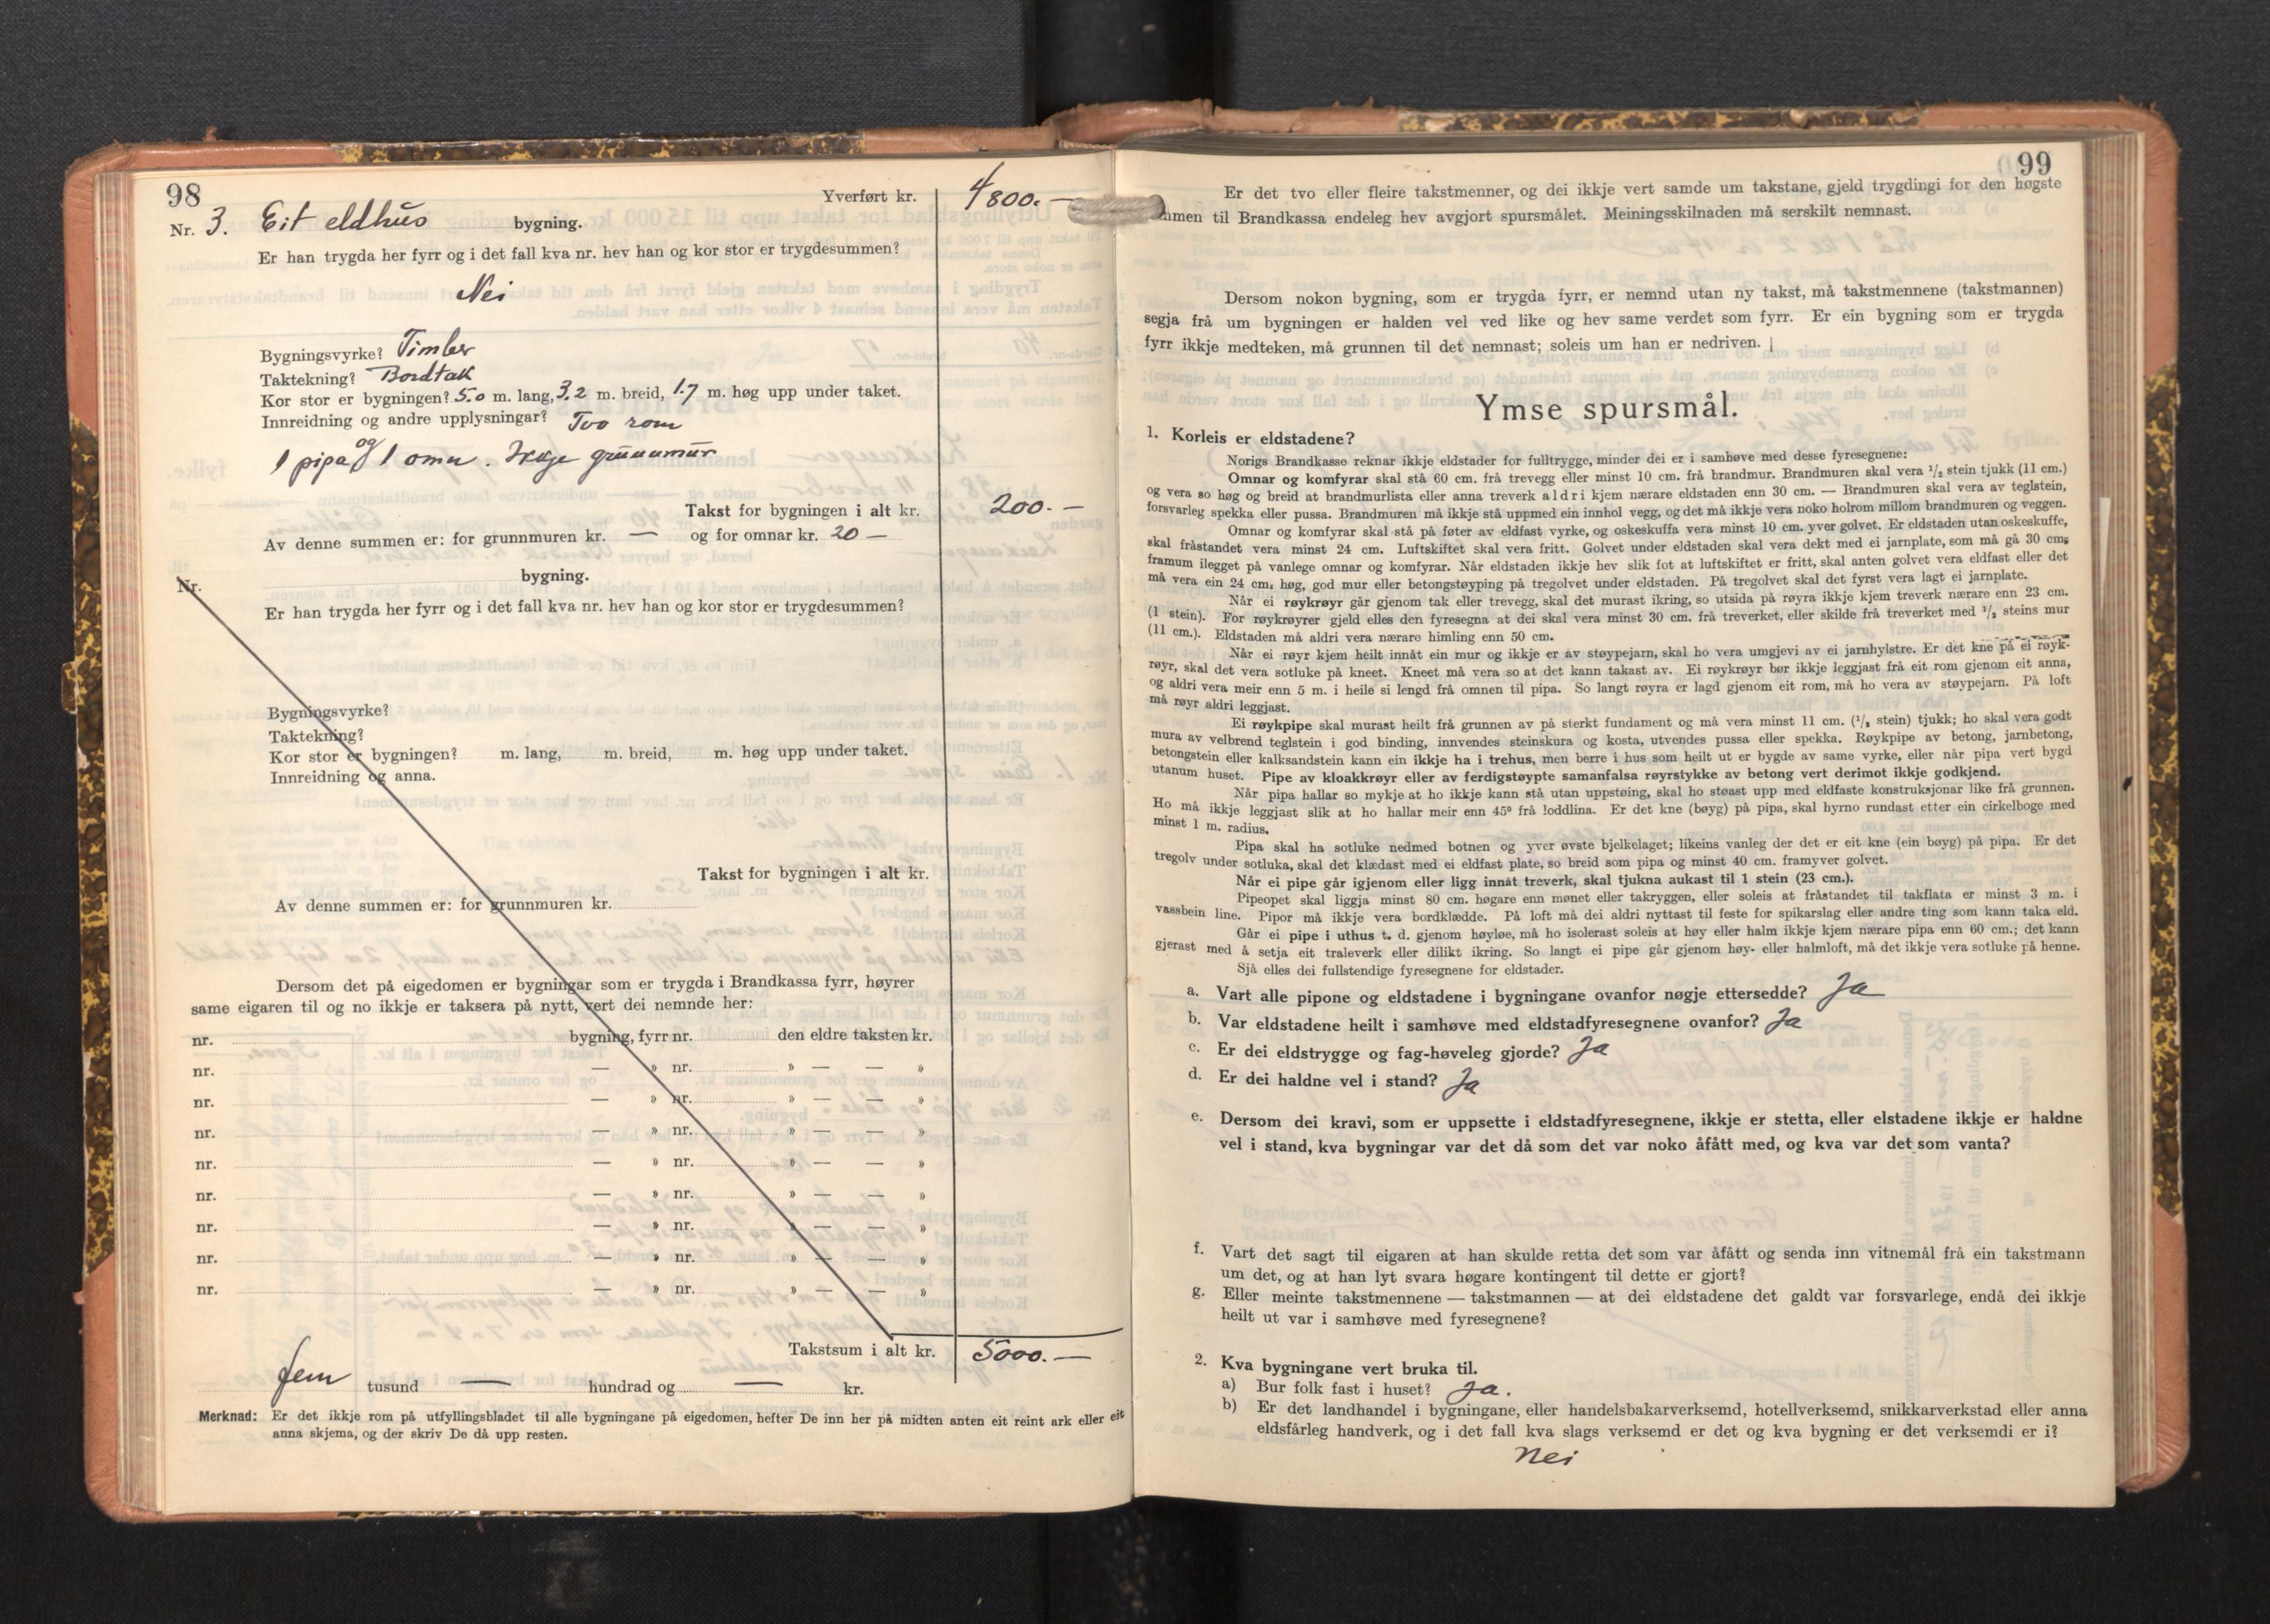 98
Yverført kr. 4800.—
Nr. 3. Eit eldhus bygning.
Er han trygda her fyrr og i det fall kva nr. hev han og kor stor er trygdesummen?
Nei
Bygningsvyrke? Timber
Taktekning? Bordtak
Kor stor er bygningen? 5.0 m. lang, 3.2 m. breid, 1.7 m. høg upp under taket.
Innreidning og andre upplysningar? Tvo rom
1 pipa og 1 omn. Ikkje grunnmur
Takst for bygningen i alt kr. 200.—
Av denne summen er: for grunnmuren kr. — og for omnar kr. 20 —
Nr. bygning.
Er han trygda her fyrr og i det fall kva nr. hev han og kor stor er trygdesummen?
Bygningsvyrke?
Taktekning?
Kor stor er bygningen? m. lang, m. breid, m. høg upp under taket.
Innreidning og anna.
Takst for bygningen i alt kr.
Av denne summen er: for grunnmuren kr.
Dersom det på eigedomen er bygningar som er trygda i Brandkassa fyrr, høyrer
same eigaren til og no ikkje er taksera på nytt, vert dei nemnde her:
nr. bygning, fyrr nr. den eldre taksten kr.
nr. — » nr. » — — »
nr. — » nr. » — — »
nr. — » nr. » — — »
nr. — » nr. » — — »
nr. — » nr. » — — »
nr. — » nr. » — — »
nr. — » nr. » — — »
nr. — » nr. » — — »
Takstsum i alt kr. 5000.—
fem tusund — hundrad og — kr.
Merknad: Er det ikkje rom på utfyllingsbladet til alle bygningane på eigedomen, hefter De inn her på midten anten eit reint ark eller eit
anna skjema, og der skriv De då upp resten.
99
Er det tvo eller fleire takstmenner, og dei ikkje vert samde um takstane, gjeld trygdingi for den høgste
mmen til Brandkassa endeleg hev avgjort spursmålet. Meiningsskilnaden må serskilt nemnast.
Dersom nokon bygning, som er trygda fyrr, er nemnd utan ny takst, må takstmennene (takstmannen)
segja frå um bygningen er halden vel ved like og hev same verdet som fyrr. Er ein bygning som er trygda
fyrr ikkje medteken, må grunnen til det nemnast; soleis um han er nedriven.
Ymse spursmål.
1. Korleis er eldstadene?
Norigs Brandkasse reknar ikkje eldstader for fulltrygge, minder dei er i samhøve med desse fyresegnene:
Omnar og komfyrar skal stå 60 cm. frå trevegg eller minst 10 cm. frå brandmur. Brandmuren skal vera ½ stein tjukk (11 cm.)
og vera so høg og breid at brandmurlista eller anna treverk aldri kjem nærare eldstaden enn 30 cm. — Brandmuren skal vera av teglstein,
forsvarleg spekka eller pussa. Brandmuren må ikkje stå uppmed ein innhol vegg, og det må ikkje vera noko holrom millom brandmuren og veggen.
Omnar og komfyrar skal stå på føter av eldfast vyrke, og oskeskuffa vera minst 10 cm. yver golvet. Er eldstaden utan oskeskuffe,
skal fråstandet vera minst 24 cm. Luftskiftet skal vera fritt. Golvet under eldstaden skal vera dekt med ei jarnplate, som må gå 30 cm.
framum ilegget på vanlege omnar og komfyrar. Når eldstaden ikkje hev slik fot at luftskiftet er fritt, skal anten golvet vera eldfast eller det
må vera ein 24 cm. høg, god mur eller betongstøyping på tregolvet under eldstaden. På tregolvet skal det fyrst vera lagt ei jarnplate.
Når ei røykrøyr går gjenom tak eller trevegg, skal det murast ikring, so utsida på røyra ikkje kjem treverk nærare enn 23 cm.
(1 stein). For røykrøyrer gjeld elles den fyresegna at dei skal vera minst 30 cm. frå treverket, eller skilde frå treverket med ½ steins mur
(11 cm.). Eldstaden må aldri vera nærare himling enn 50 cm.
Når ei røyr kjem heilt innåt ein mur og ikkje er av støypejarn, skal ho vera umgjevi av ei jarnhylstre. Er det kne på ei røyk-
røyr, skal det vera sotluke på kneet. Kneet må vera so at det kann takast av. Ei røykrøyr bør ikkje leggjast frå eit rom gjenom eit anna,
og aldri vera meir enn 5 m. i heile si lengd frå omnen til pipa. So langt røyra er lagd gjenom eit rom, må ho vera av støypejarn. På loft
må røyr aldri leggjast.
Ei røykpipe skal murast heilt frå grunnen av på sterkt fundament og må vera minst 11 cm. (½ stein) tjukk; ho skal vera godt
mura av velbrend teglstein i god binding, innvendes steinskura og kosta, utvendes pussa eller spekka. Røykpipe av betong, jarnbetong,
betongstein eller kalksandstein kann ein ikkje ha i trehus, men berre i hus som heilt ut er bygde av same vyrke, eller når pipa vert bygd
utanum huset. Pipe av kloakkrøyr eller av ferdigstøypte samanfalsa røyrstykke av betong vert derimot ikkje godkjend.
Når pipa hallar so mykje at ho ikkje kann stå utan uppstøing, skal ho støast upp med eldfaste konstruksjonar like frå grunnen.
Ho må ikkje leggjast slik at ho hallar meir enn 45° frå loddlina. Er det kne (bøyg) på pipa, skal hyrno rundast etter ein cirkelboge med
minst 1 m. radius.
Pipa skal ha sotluke nedmed botnen og yver øvste bjelkelaget; likeins vanleg der det er eit kne (ein bøyg) på pipa. Er det
tregolv under sotluka, skal det klædast med ei eldfast plate, so breid som pipa og minst 40 cm. framyver golvet.
Når ei pipe går igjenom eller ligg innåt treverk, skal tjukna aukast til 1 stein (23 cm.).
Pipeopet skal liggja minst 80 cm. høgare enn mønet eller takryggen, eller soleis at fråstandet til takflata er minst 3 m. i
vassbein line. Pipor må ikkje vera bordklædde. På loft må dei aldri nyttast til feste for spikarslag eller andre ting som kann taka eld.
Går ei pipe i uthus t. d. gjenom høyløe, må ho isolerast soleis at høy eller halm ikkje kjem nærare pipa enn 60 cm.; det kann
gjerast med å setja eit traleverk eller dilikt ikring. So langt ei pipe går gjenom høy- eller halmloft, må det ikkje vera sotluke på henne.
Sjå elles dei fullstendige fyresegnene for eldstader.
a. Vart alle pipone og eldstadene i bygningane ovanfor nøgje ettersedde? Ja
b. Var eldstadene heilt i samhøve med eldstadfyresegnene ovanfor? Ja
c. Er dei eldstrygge og fag-høveleg gjorde? Ja
d. Er dei haldne vel i stand? Ja
e. Dersom dei kravi, som er uppsette i eldstadfyresegnene, ikkje er stetta, eller elstadene ikkje er haldne
vel i stand, kva bygningar var det då som det var noko åfått med, og kva var det som vanta?
f. Vart det sagt til eigaren at han skulde retta det som var åfått og senda inn vitnemål frå ein takstmann
um det, og at han lyt svara høgare kontingent til dette er gjort?
g. Eller meinte takstmennene — takstmannen — at dei eldstadene det galdt var forsvarlege, endå dei ikkje
heilt ut var i samhøve med fyresegnene?
2. Kva bygningane vert bruka til.
a) Bur folk fast i huset? Ja.
b) Er det landhandel i bygningane, eller handelsbakarverksemd, hotellverksemd, snikkarverkstad eller anna
eldsfårleg handverk, og i det fall kva slags verksemd er det og kva bygning er det verksemdi er i?
Nei